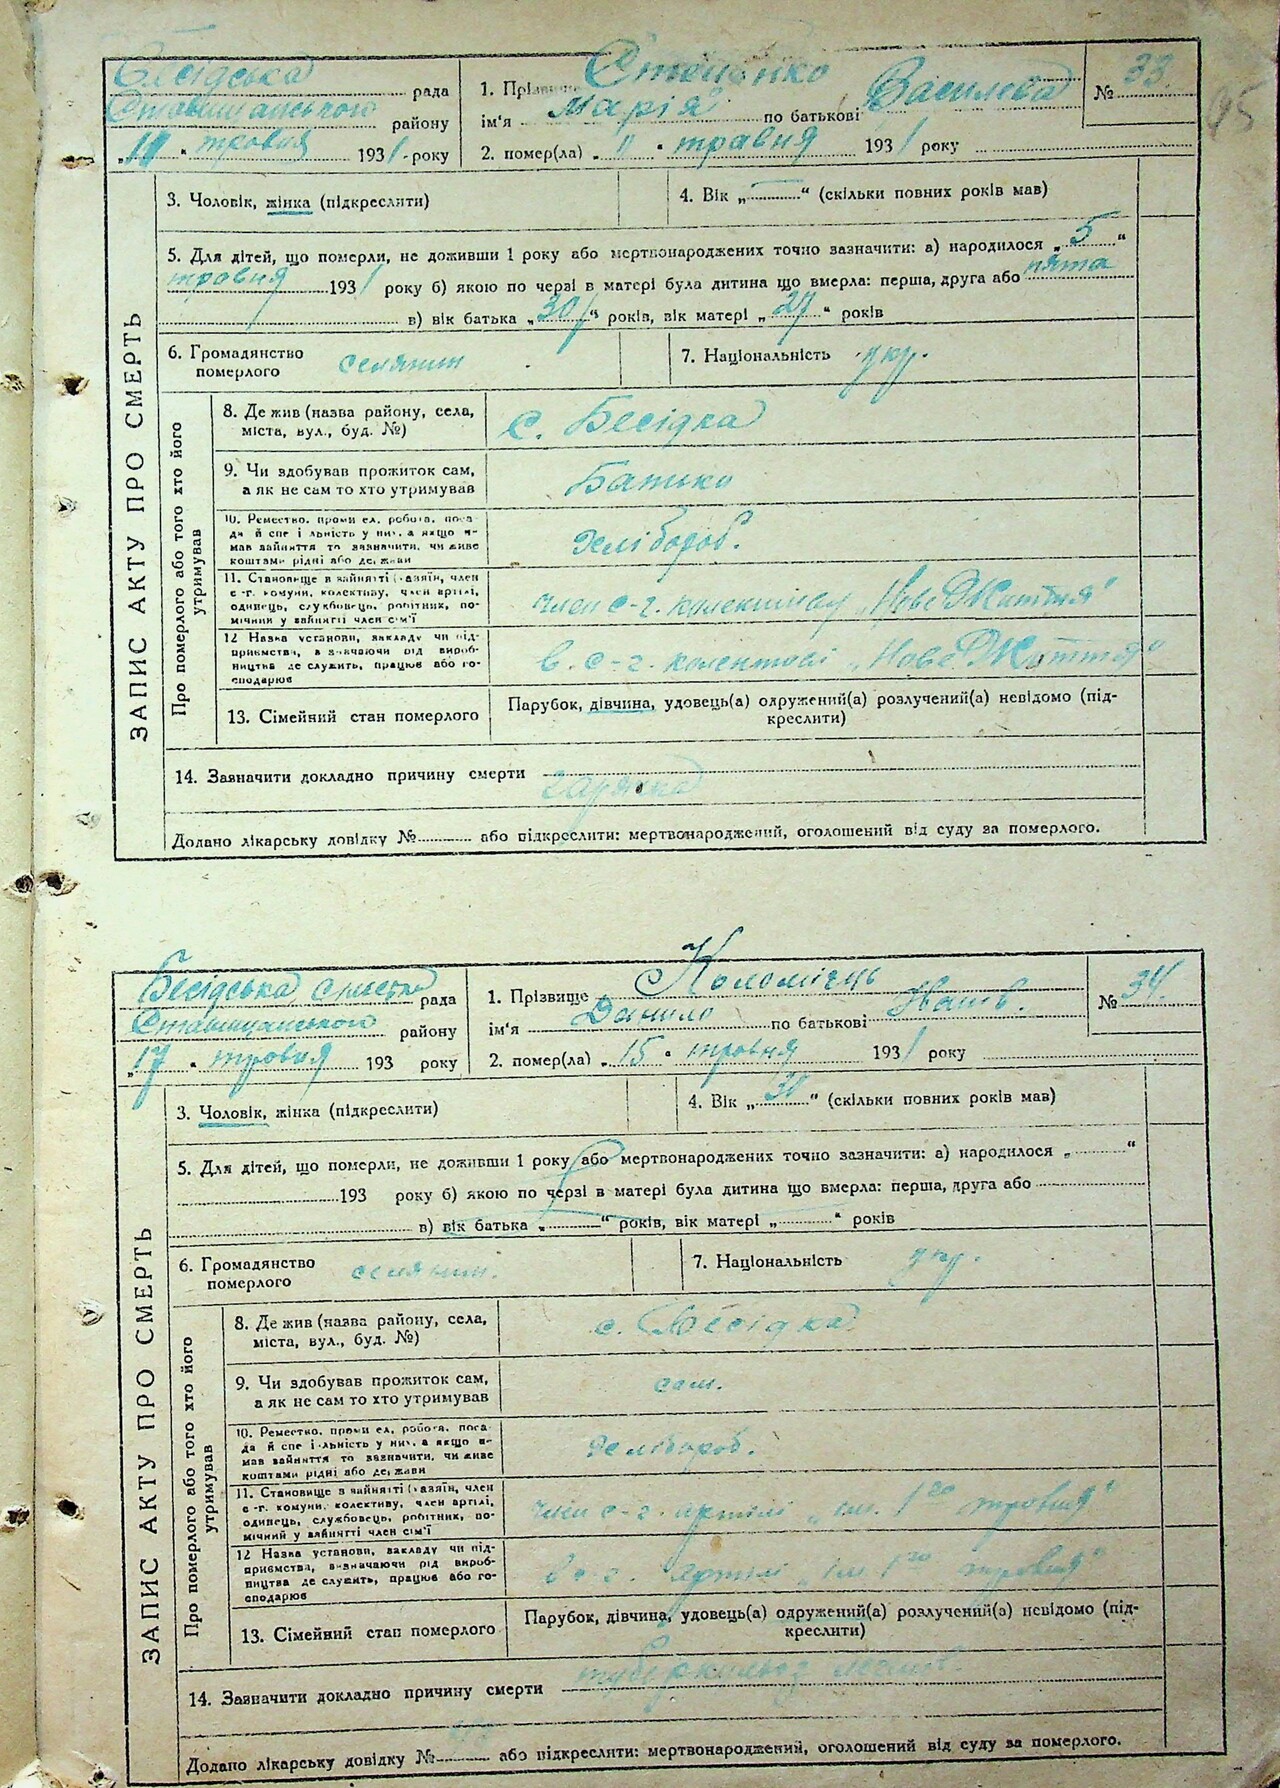 Бесідська рада
Ставищанського району
„11“ травня 1931 року
1. Прізвище Стеценко
ім'я Марія по батькові Василева
2. помер(ла) „11“ травня 1931 року
№ 33.
95
ЗАПИС АКТУ ПРО СМЕРТЬ
3. Чоловік, жінка (підкреслити)
4. Вік „—“ (скільки повних років мав)
5. Для дітей, що померли, не доживши 1 року або мертвонароджених точно зазначити: а) народилося „5“
травня 1931 року б) якою по черзі в матері була дитина що вмерла: перша, друга або пята
в) вік батька „30“ років, вік матері „27“ років
6. Громадянство
померлого селянин
7. Національність укр.
Про померлого або того хто його
утримував
8. Де жив (назва району, села,
міста, вул., буд. №)
с. Бесідка
9. Чи здобував прожиток сам,
а як не сам то хто утримував
Батько
10. Ремество, промисел, робота, поса-
да й спеціальність у них, а якщо н-
мав зайняття то зазначити, чи живе
коштами рідні або держави
Хлібороб.
11. Становище в зайнятті (хазяїн, член
с-г. комуни, колективу, член артілі,
одинець, службовець, робітник, по-
мічний у зайнятті член сім'ї
член с-г. колективу „Нове Життя“
12 Назва установи, закладу чи під-
приємства, визначаючи рід вироб-
ництва де служить, працює або го-
сподарює
в с-г. колективі „Нове Життя“
13. Сімейний стан померлого
Парубок, дівчина, удовець(а) одружений(а) розлучений(а) невідомо (під-
креслити)
14. Зазначити докладно причину смерти
гарячка
Додано лікарську довідку № або підкреслити: мертвонароджений, оголошений від суду за померлого.
Бесідська сільська рада
Ставищанського району
„17“ травня 193 року
1. Прізвище Коломієць
ім'я Данило по батькові Іванів.
2. помер(ла) „15“ травня 1931 року
№ 34.
ЗАПИС АКТУ ПРО СМЕРТЬ
3. Чоловік, жінка (підкреслити)
4. Вік „30“ (скільки повних років мав)
5. Для дітей, що померли, не доживши 1 року або мертвонароджених точно зазначити: а) народилося „“
193 року б) якою по черзі в матері була дитина що вмерла: перша, друга або
в) вік батька „“ років, вік матері „“ років
6. Громадянство
померлого селянин.
7. Національність укр.
Про померлого або того хто його
утримував
8. Де жив (назва району, села,
міста, вул., буд. №)
с. Бесідка
9. Чи здобував прожиток сам,
а як не сам то хто утримував
сам.
10. Ремество, промисел, робота, поса-
да й спеціальність у них, а якщо н-
мав зайняття то зазначити, чи живе
коштами рідні або держави
Хлібороб.
11. Становище в зайнятті (хазяїн, член
с-г. комуни, колективу, член артілі,
одинець, службовець, робітник, по-
мічний у зайнятті член сім'ї
член с-г. артілі „ім. 1го травня“
12 Назва установи, закладу чи під-
приємства, визначаючи рід вироб-
ництва де служить, працює або го-
сподарює
в с-г. артілі „ім. 1го травня“
13. Сімейний стан померлого
Парубок, дівчина, удовець(а) одружений(а) розлучений(а) невідомо (під-
креслити)
14. Зазначити докладно причину смерти туберкульоз легенів.
Додано лікарську довідку № або підкреслити: мертвонароджений, оголошений від суду за померлого.